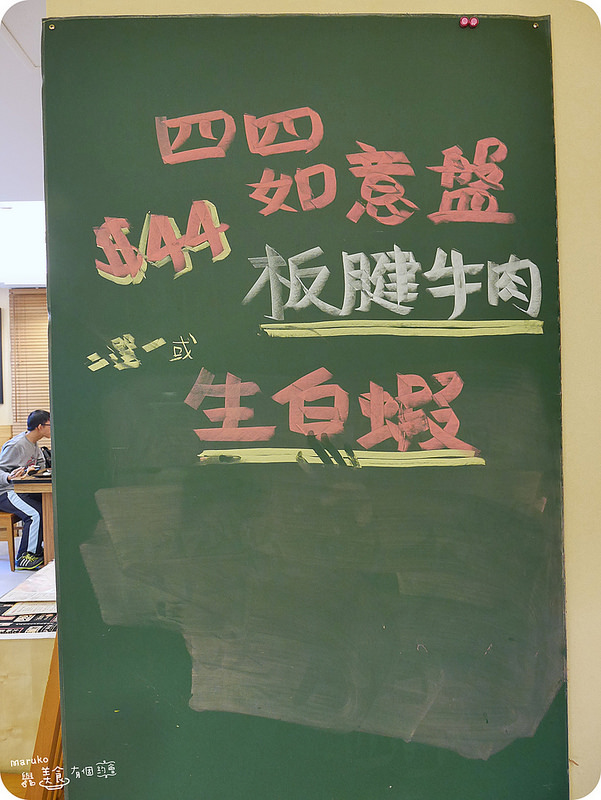 四四
如意盤
$44
板腱牛肉
二選一或
生白蝦
maruko
與美食有個約會